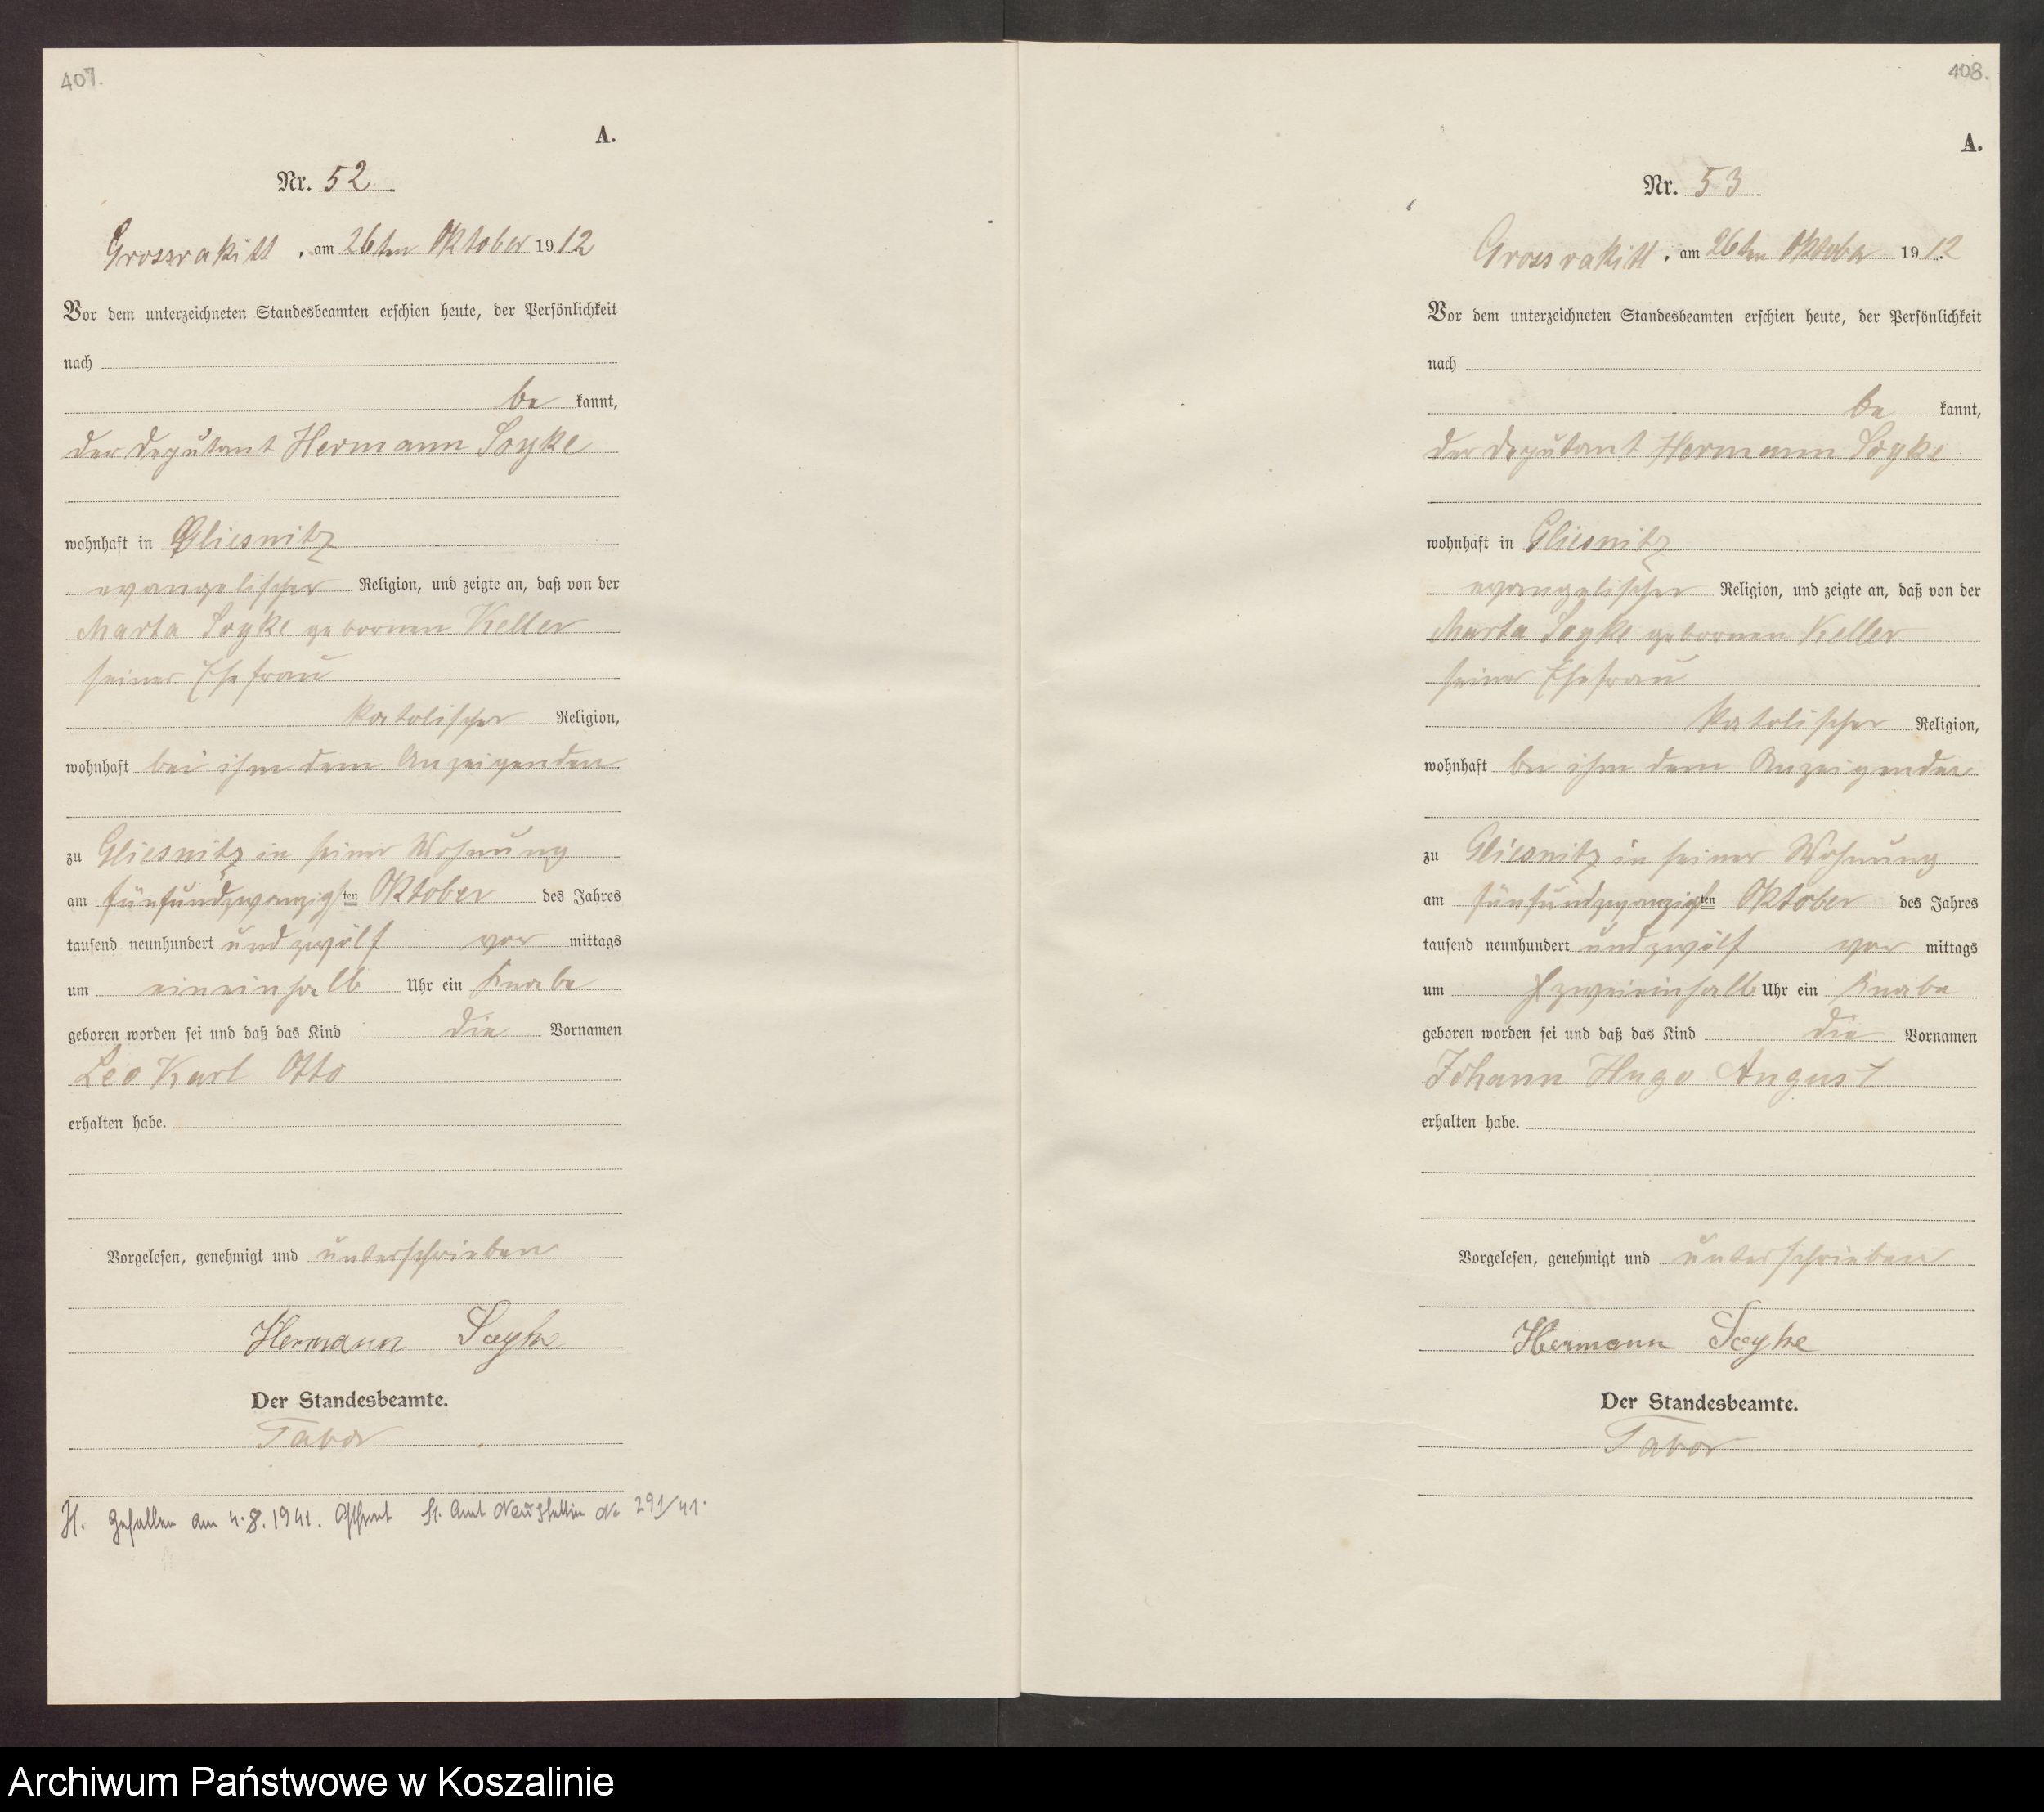 407.
A.
Nr. 52
Grossrakitt, am 26ten Oktober 1912
Vor dem unterzeichneten Standesbeamten erschien heute, der Persönlichkeit
nach
be kannt,
der Deputant Hermann Soyke
wohnhaft in Gliesnitz
evangelischer Religion, und zeigte an, daß von der
Marta Soyke geborenen Keller
seiner Ehefrau
katolischer Religion,
wohnhaft bei ihm dem Anzeigenden
zu Gliesnitz in seiner Wohnung
am fünfundzwanzigten Oktober des Jahres
tausend neunhundert und zwölf vor mittags
um eineinhalb Uhr ein Knabe
geboren worden sei und daß das Kind die Vornamen
Leo Karl Otto
erhalten habe.
Vorgelesen, genehmigt und unterschrieben
Hermann Soyke
Der Standesbeamte.
Tabor
H. Gefallen am 4.8.1941. Ostfront St. Amt Neustettin No 291/41.
408.
A.
Nr. 53
Grossrakitt, am 26ten Oktober 1912
Vor dem unterzeichneten Standesbeamten erschien heute, der Persönlichkeit
nach
be kannt,
der Deputant Hermann Soyke
wohnhaft in Gliesnitz
evangelischer Religion, und zeigte an, daß von der
Marta Soyke geborenen Keller
seiner Ehefrau
katolischer Religion,
wohnhaft bei ihm dem Anzeigenden
zu Gliesnitz in seiner Wohnung
am fünfundzwanzigten Oktober des Jahres
tausend neunhundert und zwölf vor mittags
um zweieinhalb Uhr ein Knabe
geboren worden sei und daß das Kind die Vornamen
Johann Hugo August
erhalten habe.
Vorgelesen, genehmigt und unterschrieben
Hermann Soyke
Der Standesbeamte.
Tabor
Archiwum Państwowe w Koszalinie